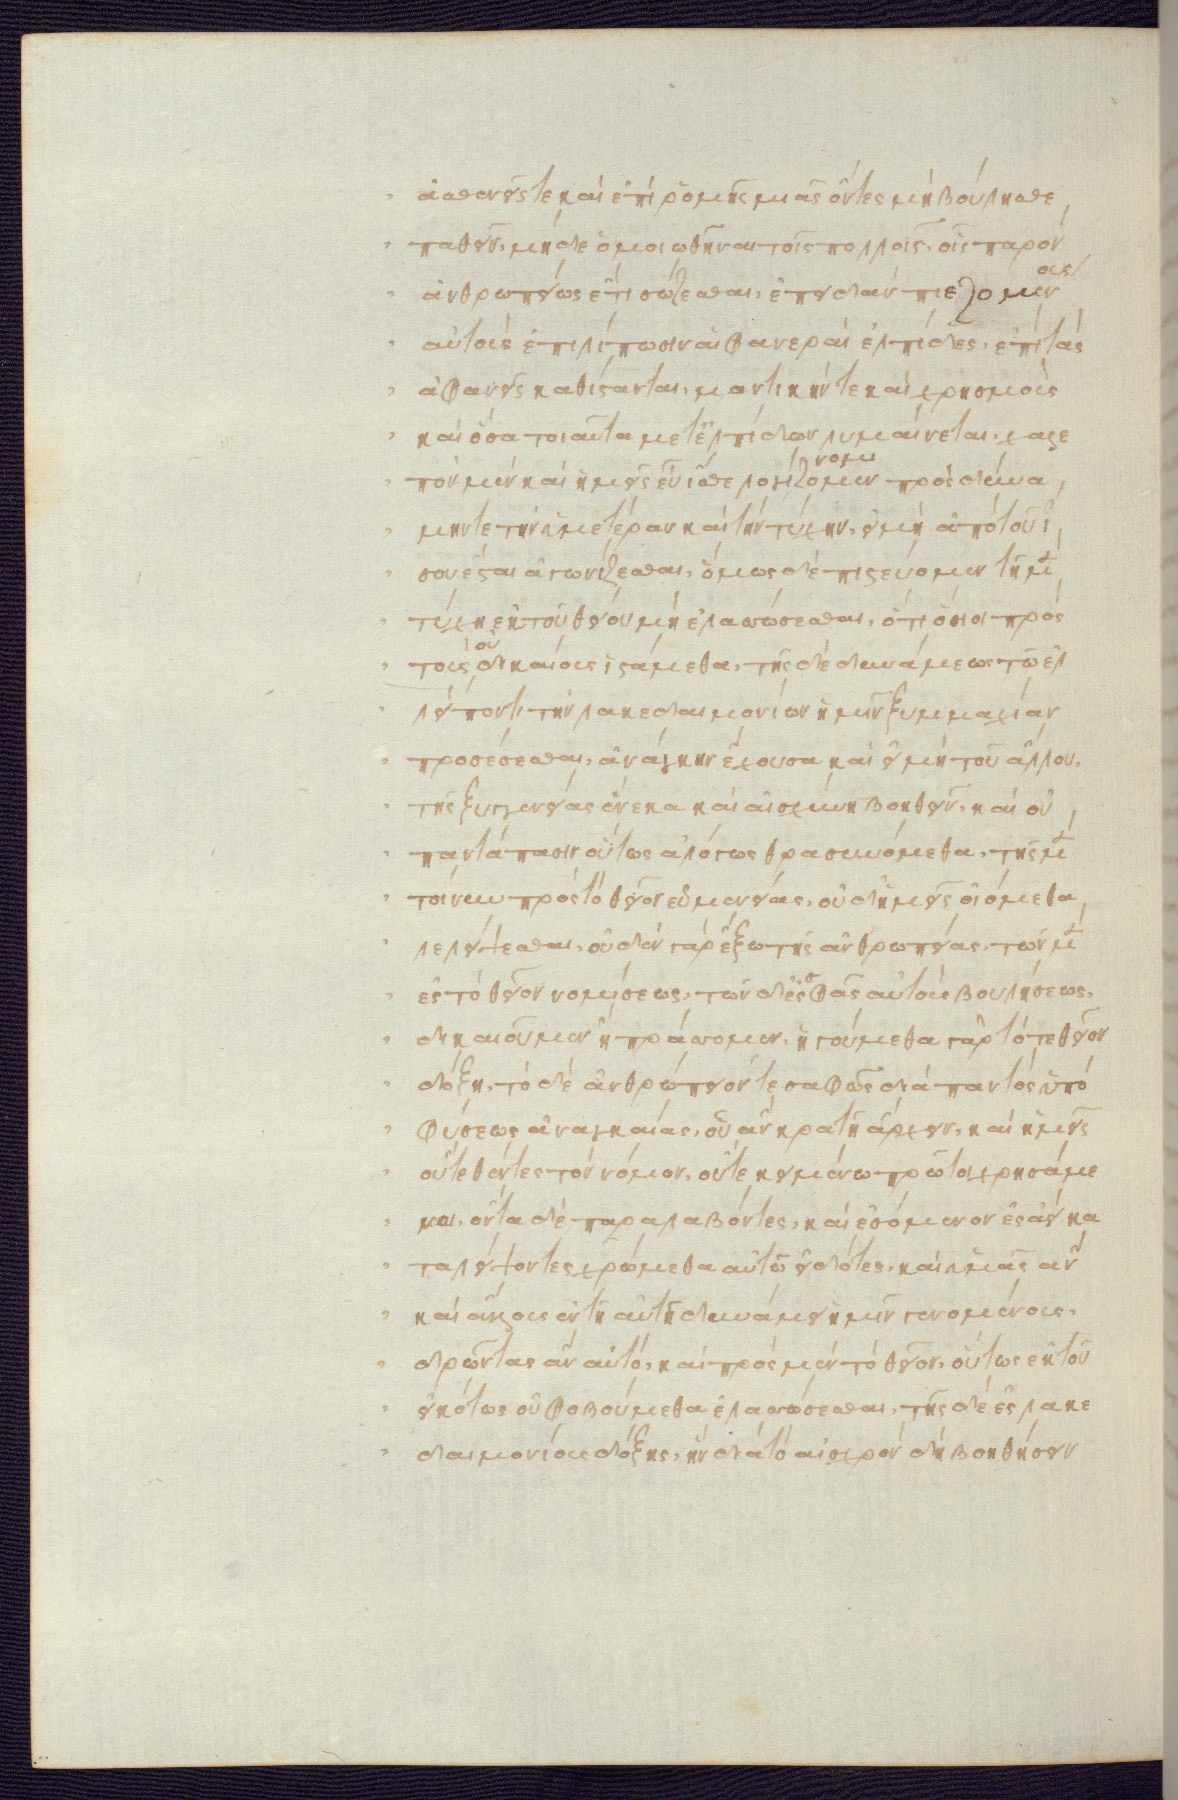 ἀσθενεῖς τε καὶ ἐπὶ ῥομῆς μιᾶς ὄντες μὴ βούλησθε
παθεῖν, μηδὲ ὁμοιωθῆναι τοῖς πολλοῖς, οἷς παρὸν
ἀνθρωπείως ἔτι σώζεσθαι, ἐπειδὰν πιεζομένοις
αὐτοὺς ἐπιλίπωσιν αἱ φανεραὶ ἐλπίδες, ἐπὶ τὰς
ἀφανεῖς καθίστανται, μαντικήν τε καὶ χρησμοὺς
καὶ ὅσα τοιαῦτα μετ' ἐλπίδων λυμαίνεται, χαλε
πὸν μὲν καὶ ἡμεῖς εὖ ἴσθε λογιζόμεν πρὸς δύνα
μιν τε τὴν ὑμετέραν καὶ τὴν τύχην, εἰ μὴ ἀπὸ τοῦ ἴ
σου ἔσται ἀγωνίζεσθαι, ὅμως δὲ πιστεύομεν τῇ μὲν
τύχῃ ἐκ τοῦ θείου μὴ ἐλασσώσεσθαι, ὅτι ὅσιοι πρὸς
τοὺς οὐ δικαίους ἱστάμεθα, τῆς δὲ δυνάμεως τῷ ἐλ
λείποντι τὴν λακεδαιμονίων ἡμῖν ξυμμαχίαν
προσέσεσθαι, ἀνάγκην ἔχουσα καὶ εἰ μὴ τοῦ ἄλλου,
τῆς ξυγγενείας ἕνεκα καὶ αἰσχύνῃ βοηθεῖν, καὶ οὐ
παντάπασιν οὕτως ἀλόγως θρασυνόμεθα, τῆς μὲν
τοίνυν πρὸς τὸ θεῖον εὐμενείας, οὐδ' ἡμεῖς οἰόμεθα
λελείψεσθαι, οὐδὲν γὰρ ἔξω τῆς ἀνθρωπείας, τῶν μὲν
ἐς τὸ θεῖον νομίσεως, τῶν δ' ἐς σφᾶς αὐτοὺς βουλήσεως,
δικαιοῦμεν ἢ πράσσομεν, ἡγούμεθα γὰρ τό τε θεῖον
δόξῃ, τὸ δὲ ἀνθρώπειόν τε σαφῶς διὰ παντὸς ὑπὸ
φύσεως ἀναγκαίας, οὗ ἂν κρατῇ ἄρχειν, καὶ ἡμεῖς
οὔτε θέντες τὸν νόμον, οὔτε κειμένῳ πρῶτοι χρησάμε
νοι, ὄντα δὲ παραλαβόντες, καὶ ἐσόμενον ἐς ἀεὶ κα
ταλείψοντες χρώμεθα αὐτῷ εἰδότες, καὶ ὑμᾶς ἂν
καὶ ἄλλους ἐν τῇ αὐτῇ δυνάμει ἡμῖν γενομένους,
δρῶντας ἂν αὐτό, καὶ πρὸς μὲν τὸ θεῖον, οὕτως ἐκ τοῦ
εἰκότως οὐ φοβούμεθα ἐλασσώσεσθαι, τῆς δὲ ἐς λακε
δαιμονίους δόξης, ἣν διὰ τὸ αἰσχρὸν δὴ βοηθήσειν